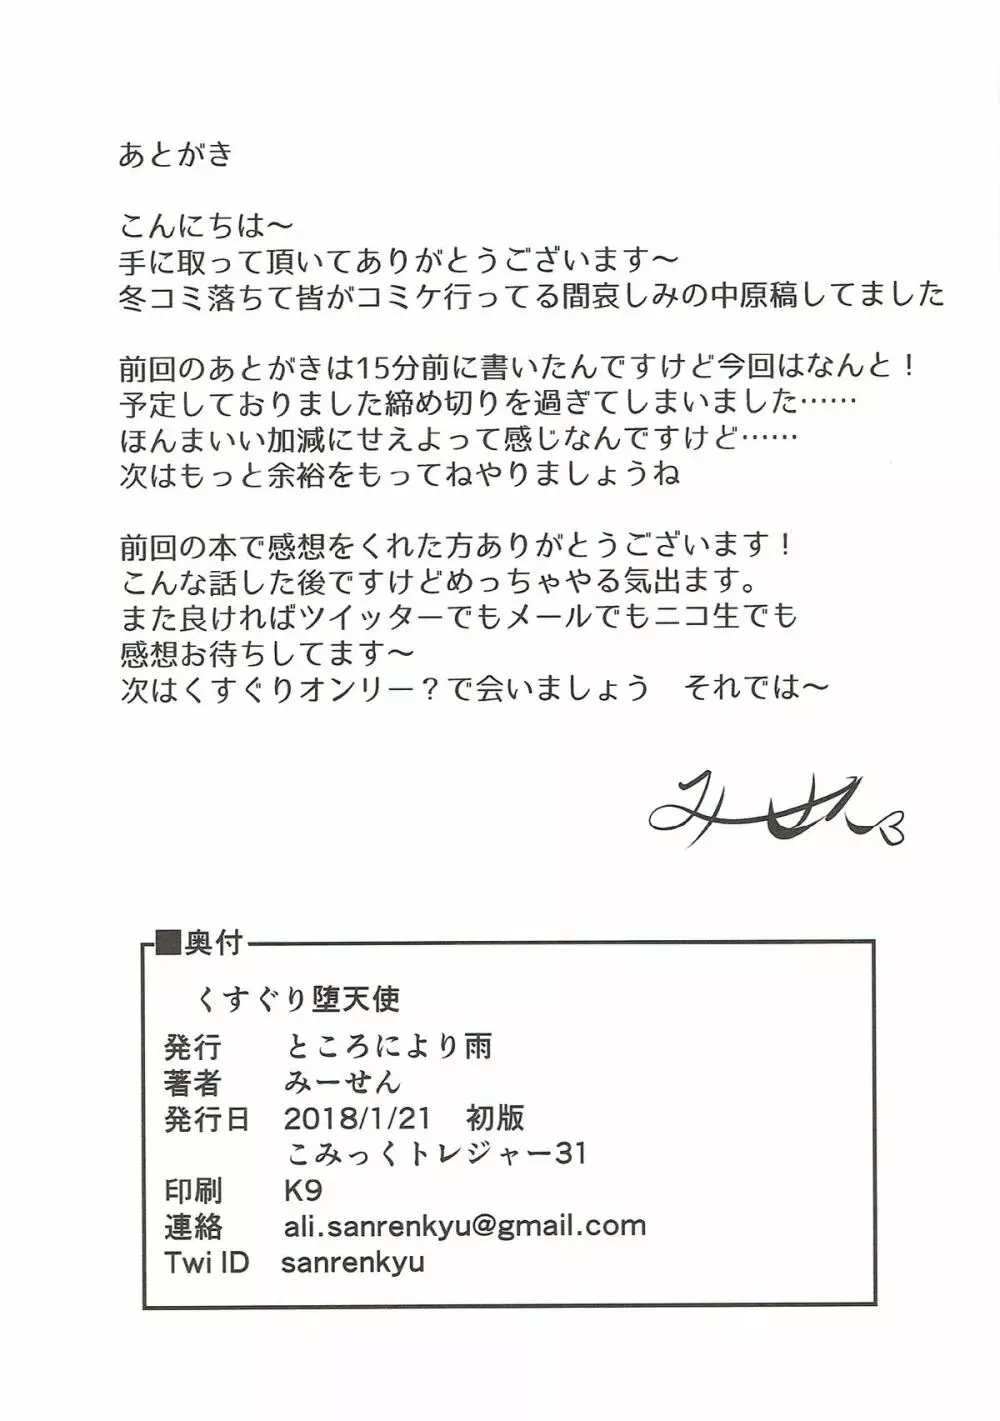 あとがき
こんにちは～
手に取って頂いてありがとうございます～
冬コミ落ちて皆がコミケ行ってる間哀しみの中原稿してました
前回のあとがきは15分前に書いたんですけど今回はなんと！
予定しておりました締め切りを過ぎてしまいました……
ほんまいい加減にせえよって感じなんですけど……
次はもっと余裕をもってねやりましょうね
前回の本で感想をくれた方ありがとうございます！
こんな話した後ですけどめっちゃやる気出ます。
また良ければツイッターでもメールでもニコ生でも
感想お待ちしてます～
次はくすぐりオンリー？で会いましょう　それでは～
みーせん
■奥付
くすぐり堕天使
発行　ところにより雨
著者　みーせん
発行日　2018/1/21　初版
こみっくトレジャー31
印刷　K9
連絡　ali.sanrenkyu@gmail.com
Twi ID　sanrenkyu